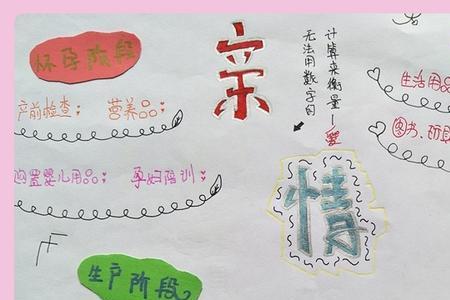 怀孕阶段
产前检查； 营养品；
购置婴儿用品； 孕妇培训；
生产阶段
亲
情
无法用数字的
计算来衡量—爱
生活用品
图书、玩具